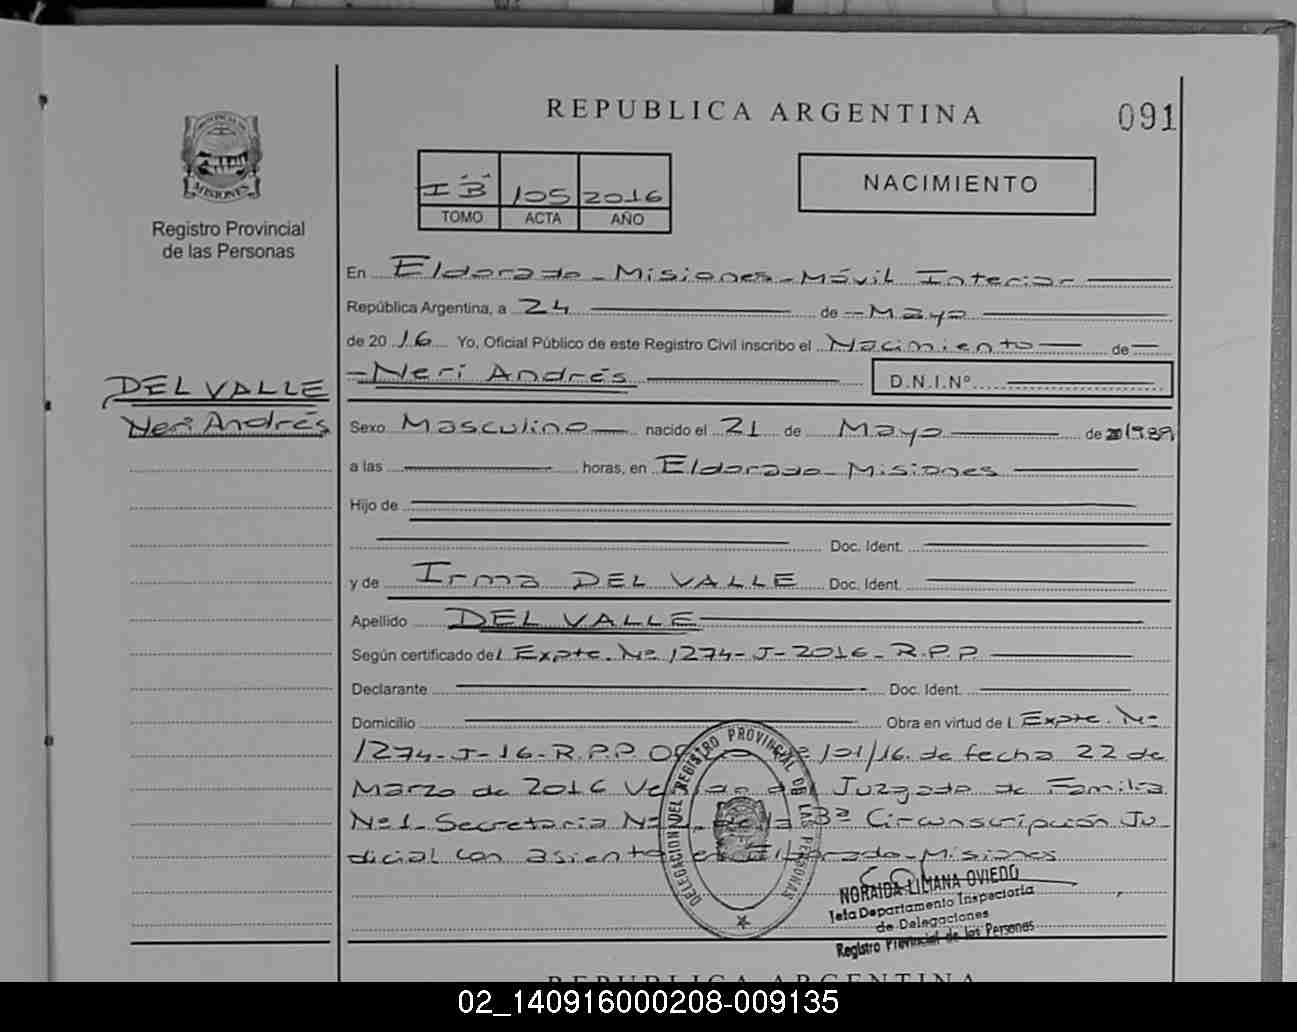 REPUBLICA ARGENTINA
091
PROVINCIA DE
MISIONES
Registro Provincial
de las Personas
I "B" 105 2016
TOMO ACTA AÑO
NACIMIENTO
En Eldorado - Misiones - Móvil Interior
República Argentina, a 24 de Mayo
de 2016 Yo, Oficial Público de este Registro Civil inscribo el Nacimiento de
Neri Andrés D.N.I.Nº
DEL VALLE
Neri Andrés
Sexo Masculino nacido el 21 de Mayo de 1989
a las horas, en Eldorado - Misiones
Hijo de
Doc. Ident.
y de Irma DEL VALLE Doc. Ident.
Apellido DEL VALLE
Según certificado del Expte. Nº 1274-J-2016-R.P.P
Declarante Doc. Ident.
Domicilio Obra en virtud de l Expte. Nº
1274-J-16-R.P.P. Nº 101/16. de fecha 22 de
Marzo de 2016 del Juzgado de Familia
Nº 1 - Secretaria Nº de la 3ª Circunscripción Ju-
dicial con asiento en Eldorado - Misiones
DELEGACION DEL REGISTRO PROVINCIAL DE LAS PERSONAS
NORAIDA LILIANA OVIEDO
Jefa Departamento Inspectoria
de Delegaciones
Registro Provincial de las Personas
REPUBLICA ARGENTINA
02_140916000208-009135